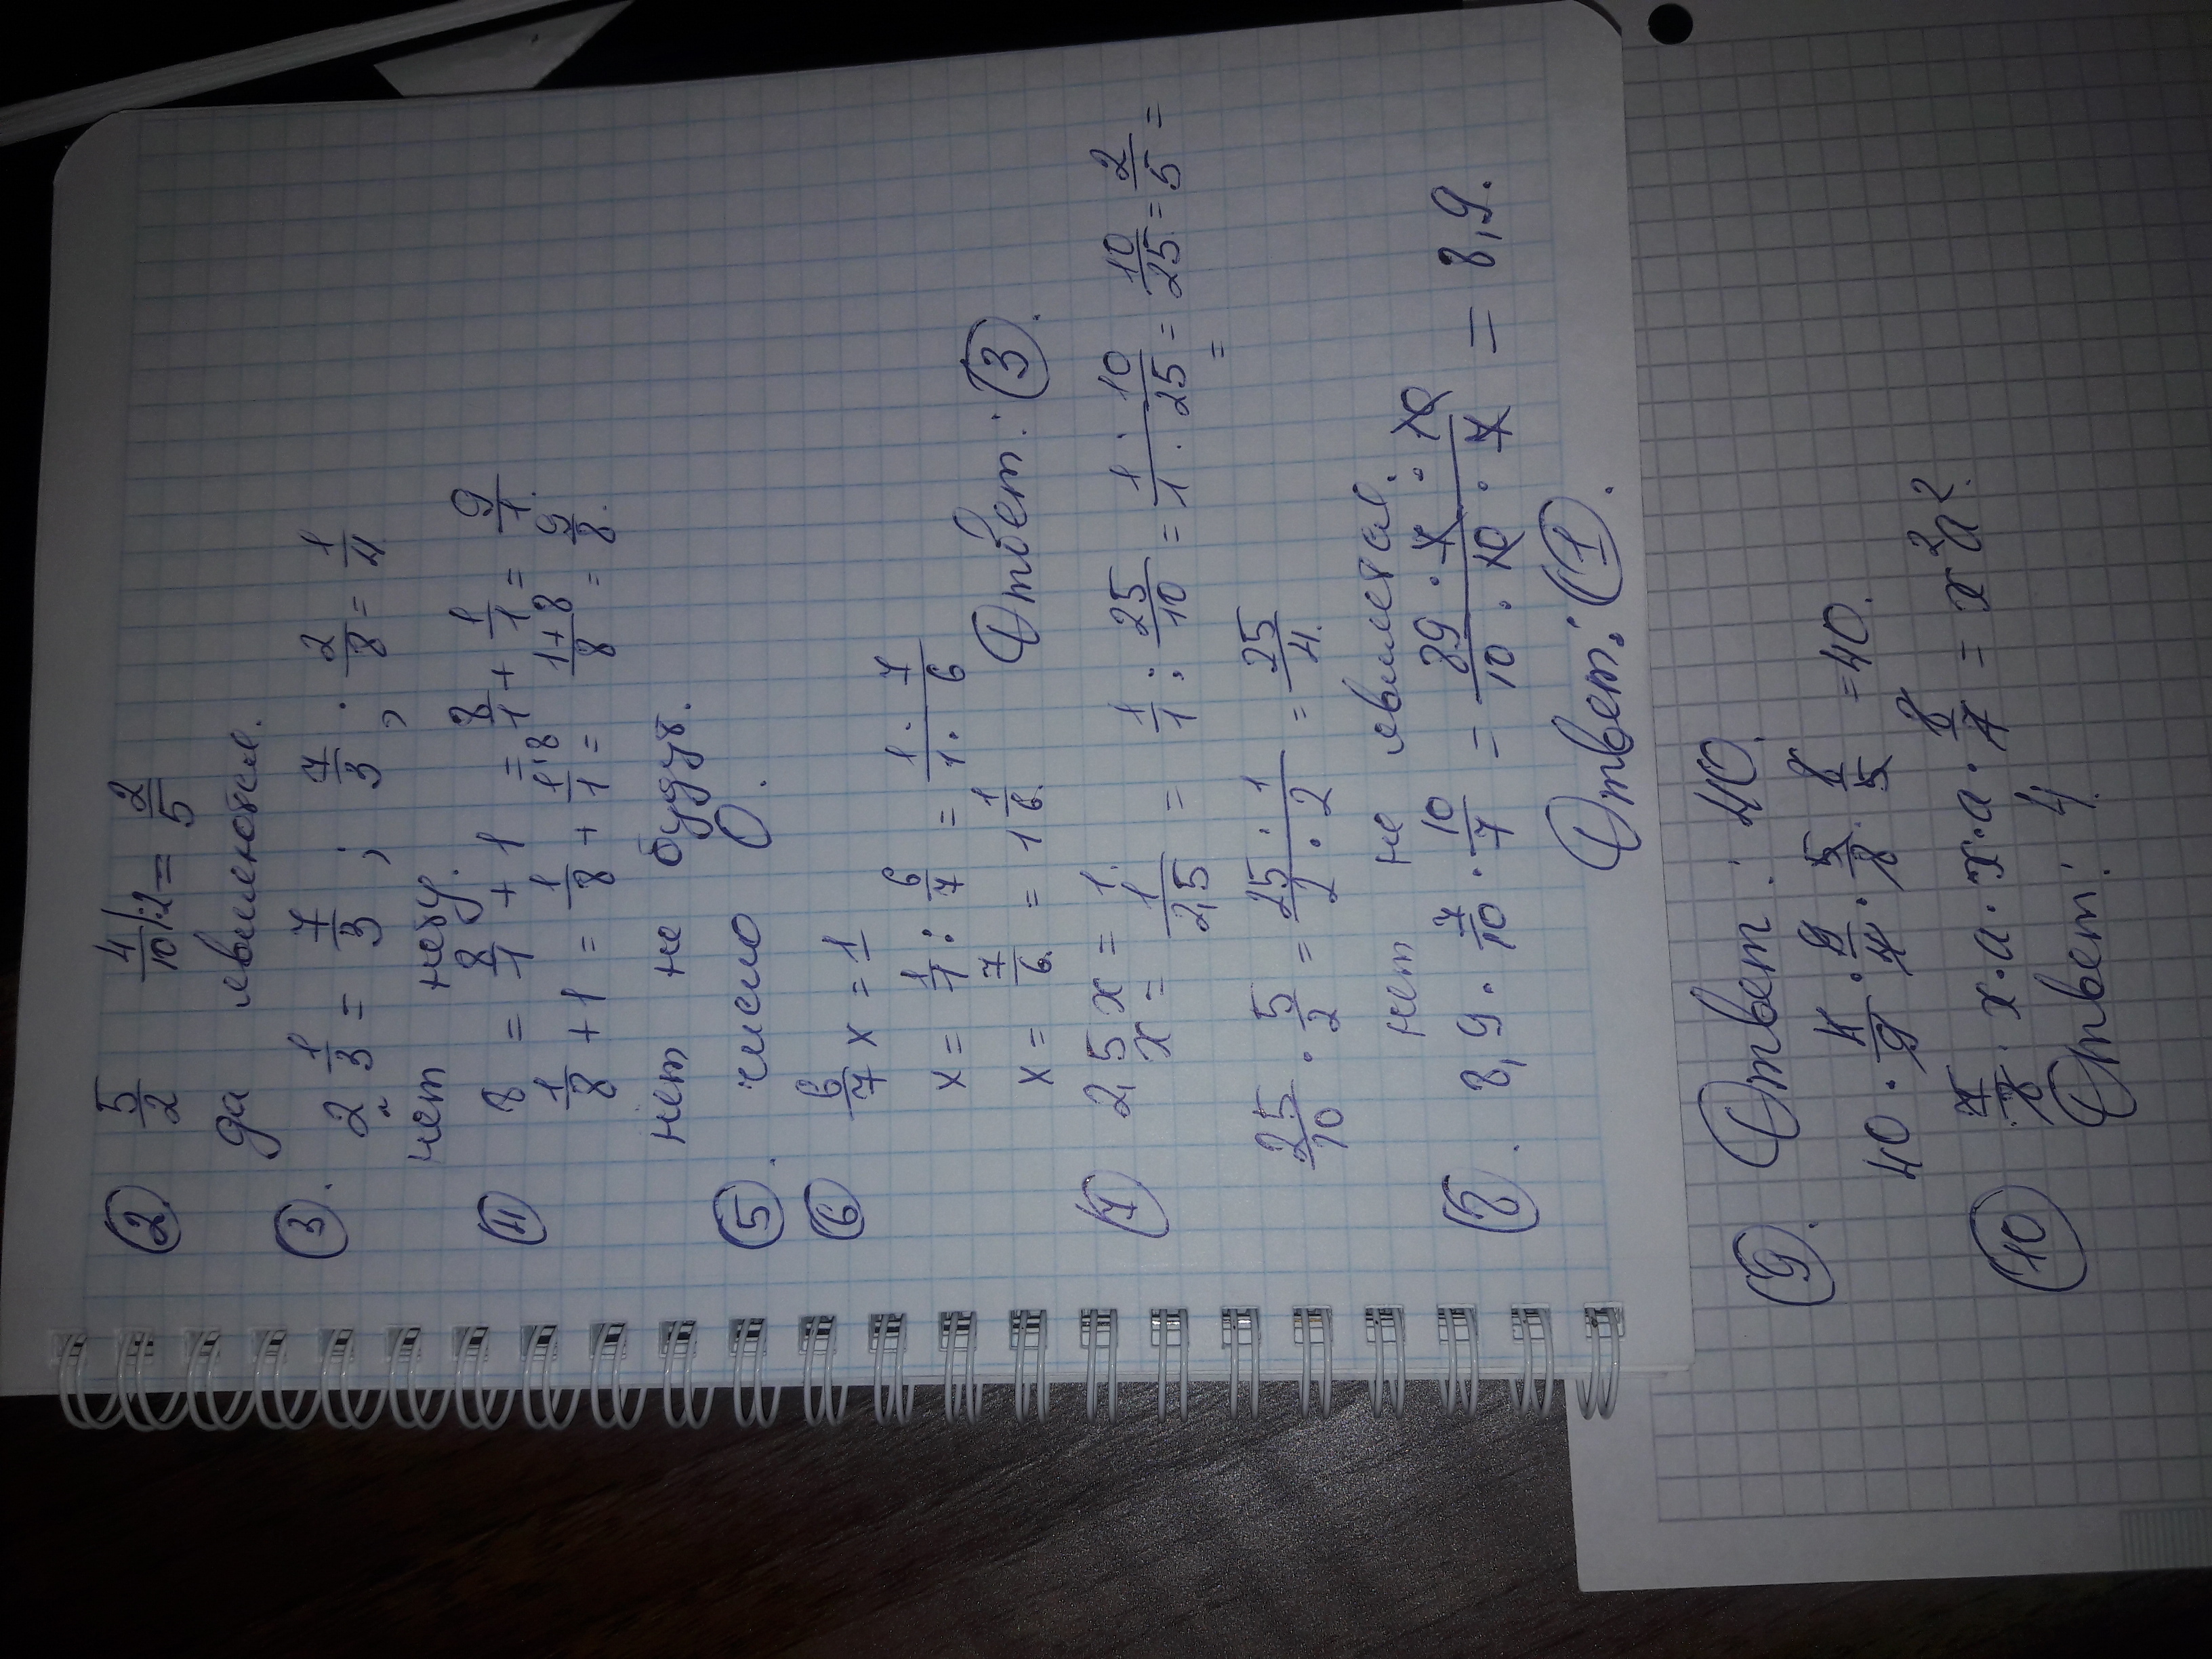 ② 5/2 4/10|:2 = 2/5
да являются.
③. 2 1/3 = 7/3 ; 7/3 ; 2/8 = 1/4
нет нету.
④ 8 = 8/1 + 1 = 8/1 + 1/1 = 9/1.
1/8 + 1 = 1/8 + 1/1 = 1+8/8 = 9/8.
нет не будут.
⑤. число 0.
⑥ 6/7 x = 1
x = 1/1 : 6/7 = 1·7/1·6
x = 7/6 = 1 1/6. Ответ: ③.
⑦ 2,5 x = 1.
x = 1/2,5 = 1/1 : 25/10 = 1·10/1·25 = 10/25 = 2/5 =
25/10 · 5/2 = 25·1/2·2 = 25/4.
нет не являетая.
⑧. 8,9 · 7/10 · 10/7 = 89·7·10/10·10·7 = 8,9.
Ответ: ①.
⑨. Ответ: 40.
40 · 4/9 · 9/4 · 5/8 · 8/5 = 40.
⑩ 7/8 · x·a·x·a · 8/7 = x²a².
Ответ: 4.